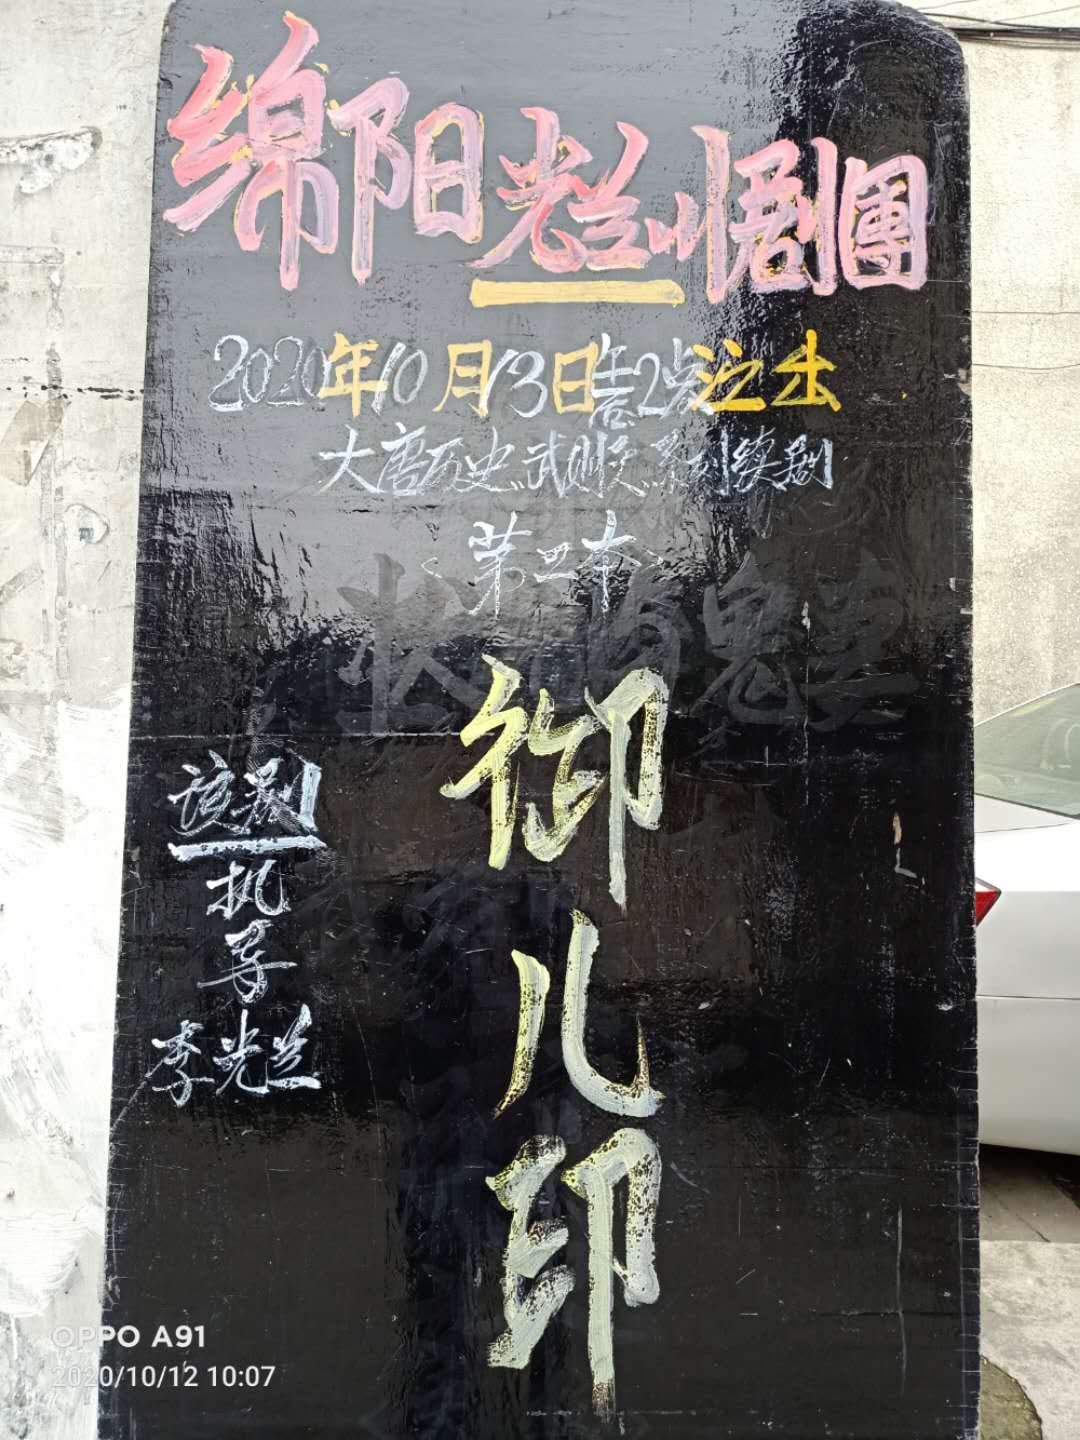 绵阳光兰川剧團
2020年10月13日午后2点演出
大唐历史武则天系列续剧
<第二本>
御儿印
该剧
执导
李光兰
OPPO A91
2020/10/12 10:07